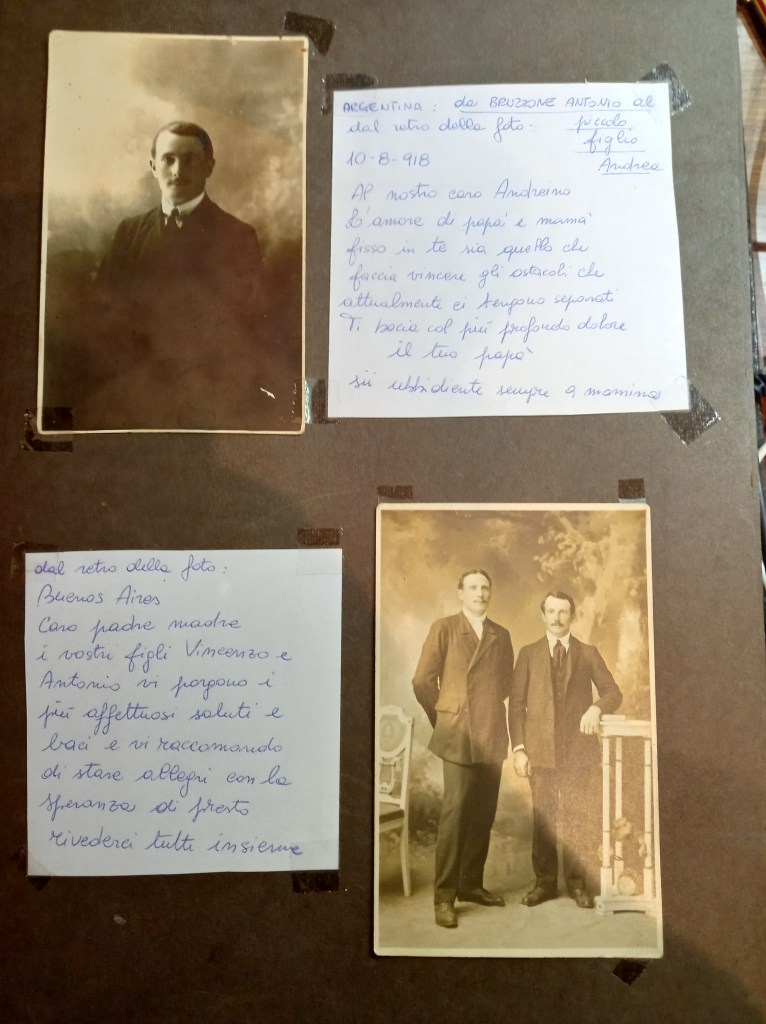 ARGENTINA: da BRUZZONE ANTONIO al
dal retro della foto: piccolo
figlio
10-8-918 Andrea
Al nostro caro Andreino
L'amore di papà e mamà
fisso in te sia quello che
faccia vincere gli ostacoli che
attualmente ci tengono separati
Ti bacia col più profondo dolore
il tuo papà
sii ubbidiente sempre a mamina
dal retro della foto:
Buenos Aires
Caro padre madre
i vostri figli Vincenzo e
Antonio vi porgono i
più affettuosi saluti e
baci e vi raccomando
di stare allegri con la
speranza di presto
rivederci tutti insieme